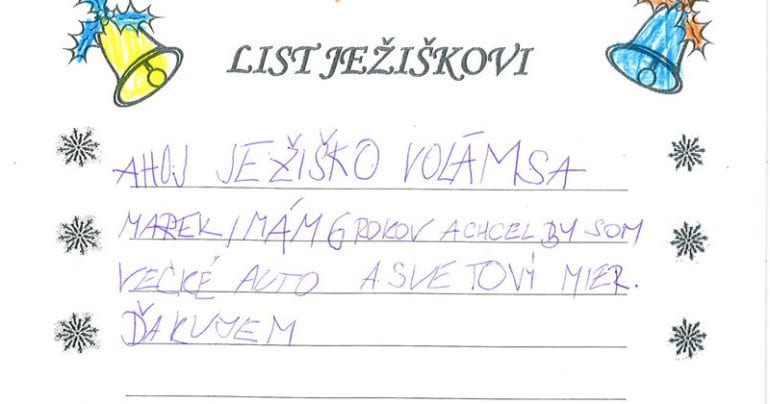 LIST JEŽIŠKOVI
AHOJ JEŽIŠKO VOLÁM SA
MAREK, MÁM 6 ROKOV A CHCEL BY SOM
VEĎKÉ AUTO A SVETOVÍ MIER.
ĎAKUJEM